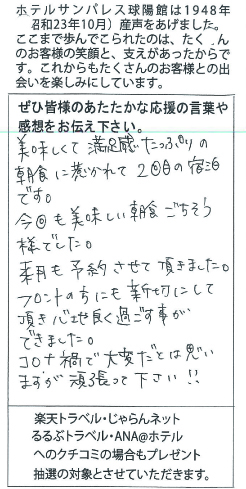 ホテルサンパレス球陽館は1948年
(昭和23年10月)産声をあげました。
ここまで歩んでこられたのは、たくさん
のお客様の笑顔と、支えがあったからで
す。これからもたくさんのお客様との出
会いを楽しみにしています。
ぜひ皆様のあたたかな応援の言葉や
感想をお伝え下さい。
美味しくて満足感たっぷりの
朝食に惹かれて2回目の宿泊
です。
今回も美味しい朝食ごちそう
様でした。
来月も予約させて頂きました。
フロントの方にも親切にして
頂き心地良く過ごす事が
できました。
コロナ禍で大変だとは思い
ますが頑張って下さい!!
楽天トラベル・じゃらんネット
るるぶトラベル・ANA@ホテル
へのクチコミの場合もプレゼント
抽選の対象とさせていただきます。